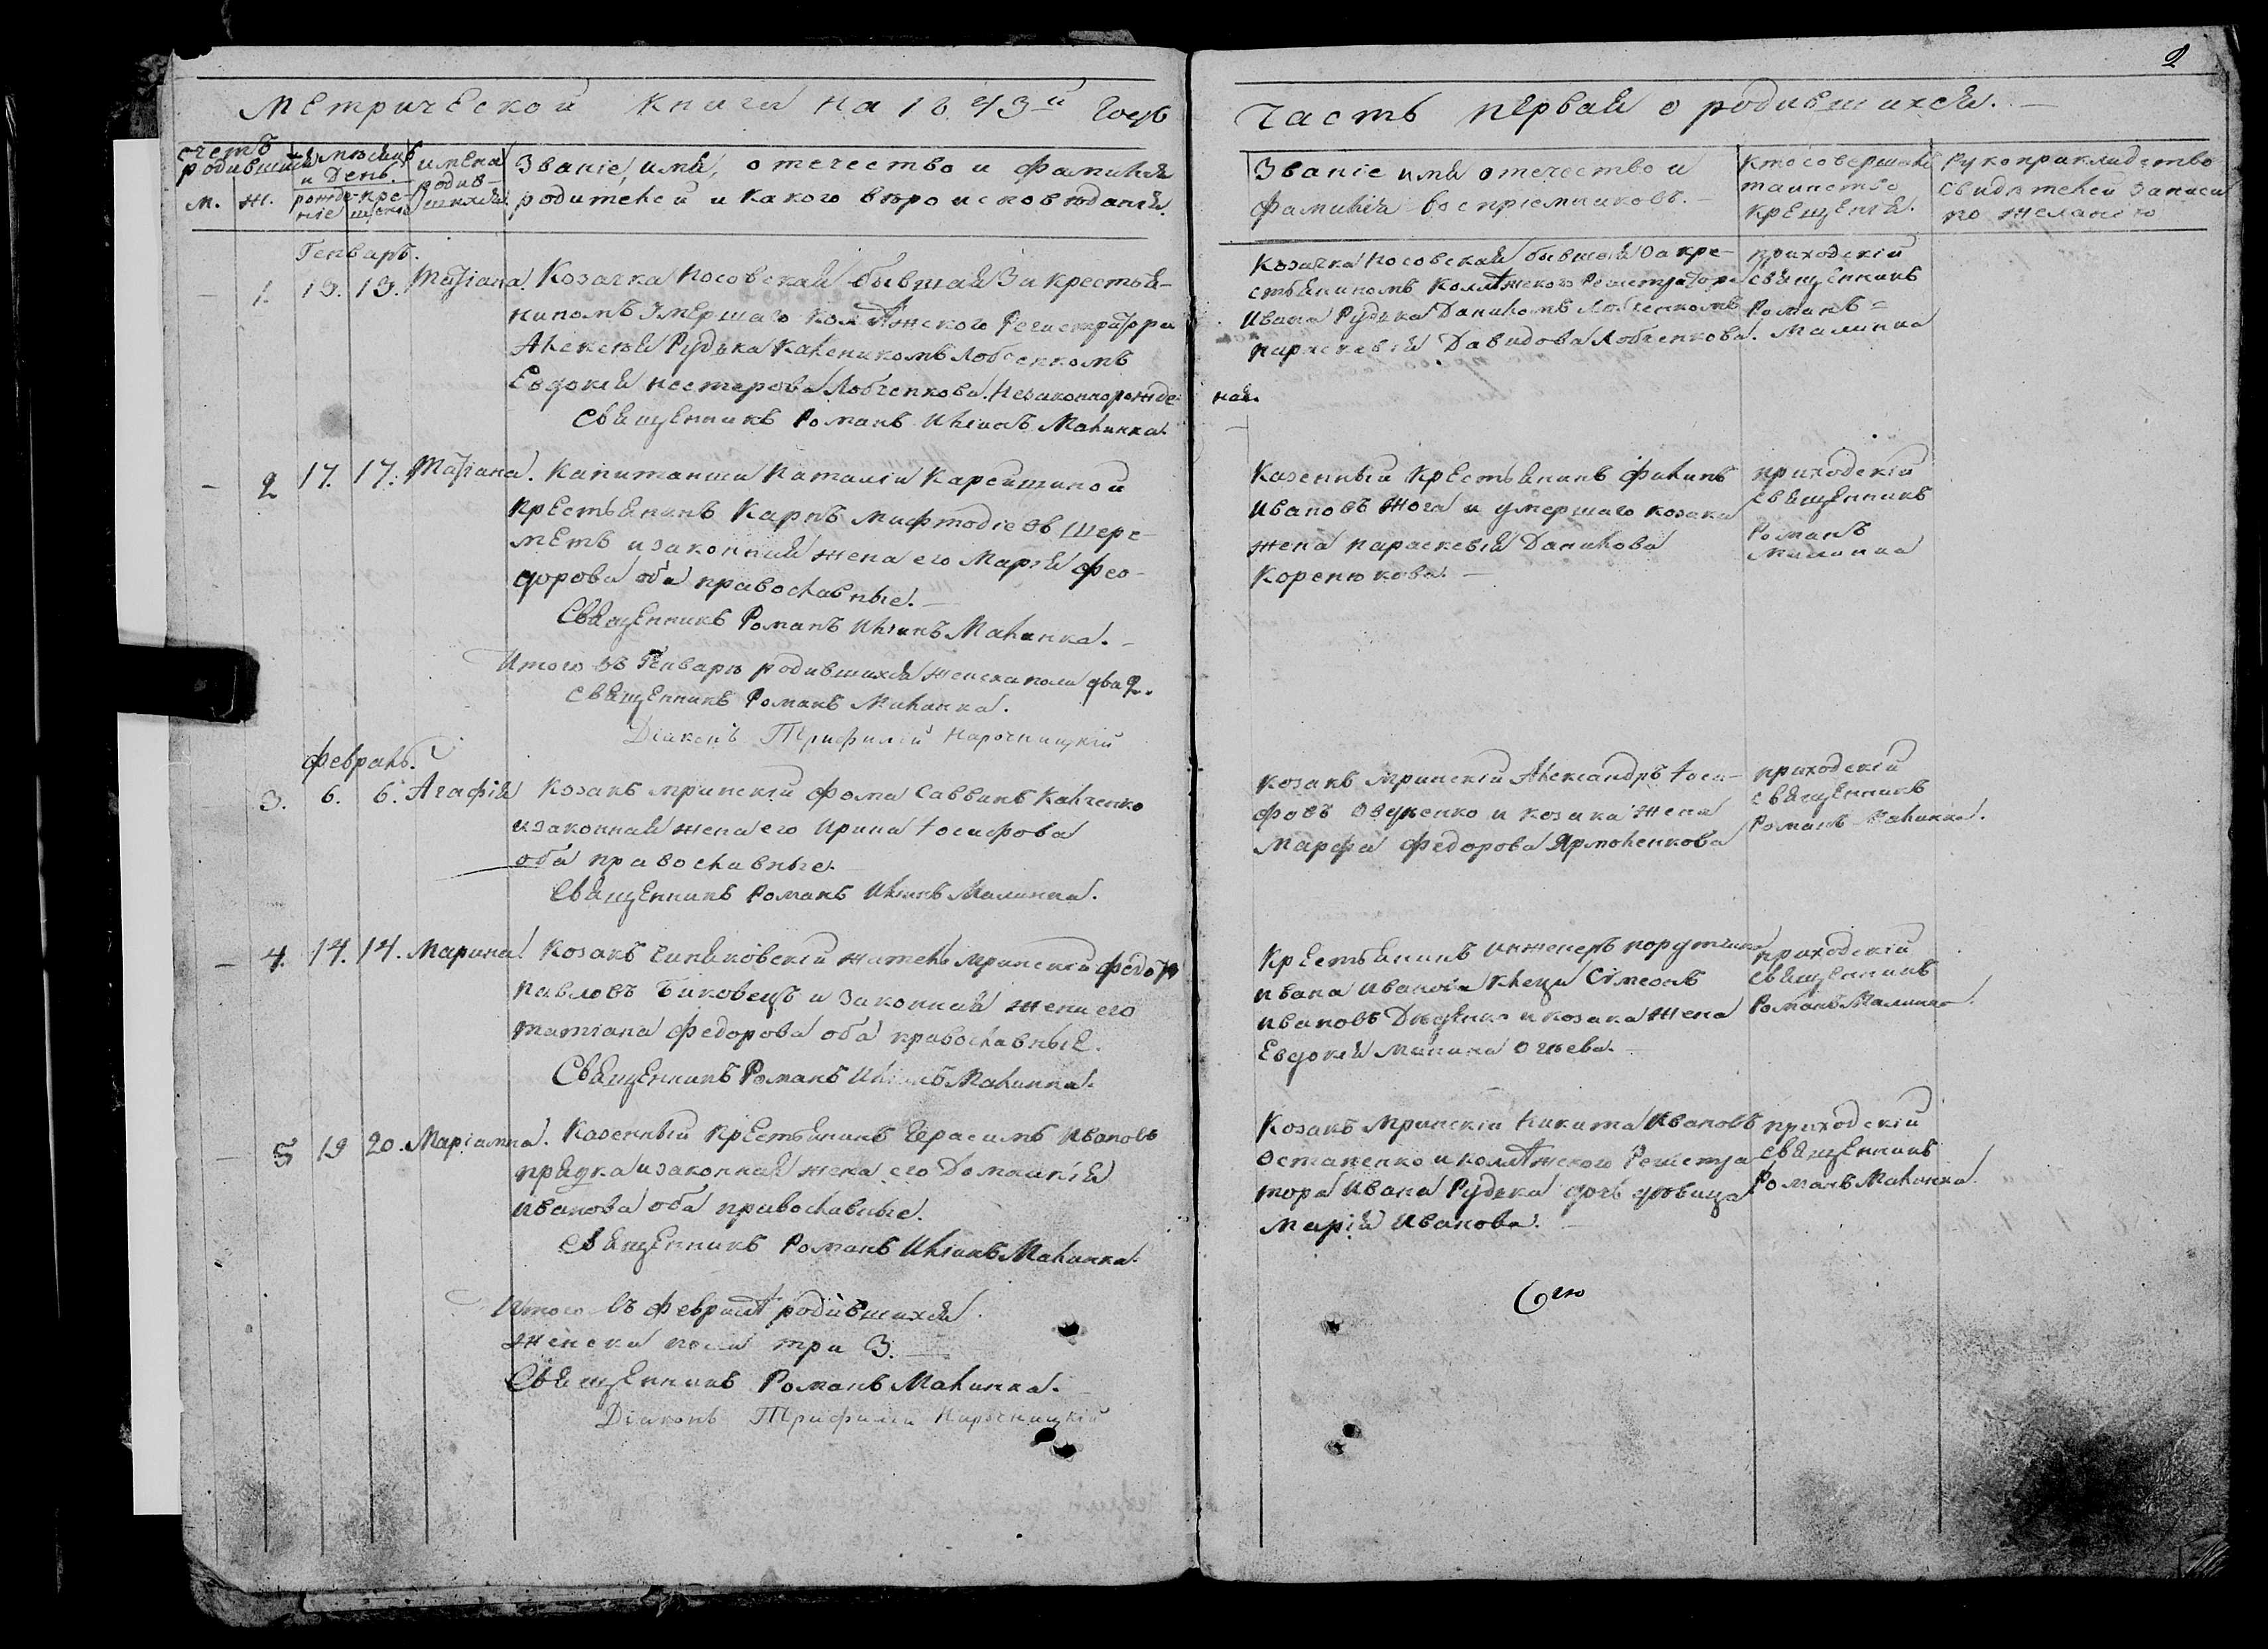 2
Метрической книги на 1843й годъ
Часть первая о родившихся.
счетъ родившихся
м. ж.
мѣсяцъ и день.
рожденіе крещенія
имена родившихся
Званіе, имя, отечество и фамилія
родителей и какого вѣроисповѣданія.
Званіе имя отечество и
фамилія воспріемниковъ.
Кто совершалъ
таинство
крещенія.
Рукоприкладство
свидѣтелей записи
по желанію
Генварь.
1. 13. 13. Татіана. Козачка Носовская бывшая за крестья-
ниномъ умершаго Коллѣжского Регистратора
Алексѣя Рудька Калеником Лобченкомъ
Евдокія Нестерова Лобченкова. Незаконнорожде-
ная.
Священникъ Романъ Иліинъ Малинка.
Козачка Носовская бывшая за кре-
стьяниномъ Коллѣжского Регистратора
Ивана Рудька Даниломъ Лобченкомъ
Параскевія Давидова Лобченкова.
приходскій
священникъ
Романъ
Малинка
2 17. 17. Татіана. Капитанши Наталіи Карейшиной
крестьянинъ Карпъ Мифтодіевъ Шере-
метъ и законная жена его Марія Фео-
дорова оба православные.
Священникъ Романъ Иліинъ Малинка.
Казенный крестьянинъ Филипъ
Ивановъ Жога и умершаго козака
жена Параскевія Данилова
Коренюкова.
приходскій
священникъ
Романъ
Малинка
Итого въ Генварѣ родившихся женска пола два 2.
Священникъ Романъ Малинка.
Діаконъ Трифилій Нарочницкій
Февраль.
3. 6. 6. Агафія Козакъ мринскій Фома Саввинъ Калченко
и законная жена его Ирина Іосифова
оба православные.
Священникъ Романъ Иліинъ Малинка.
Козакъ мринскій Александръ Іоси-
фовъ и козака жена
Марфа Федорова Ярмоленкова
приходскій
священникъ
Романъ Малинка.
4. 14. 14. Марина. Козакъ житель мринскій Федоръ
Павловъ Биковецъ и законная жена его
Татіана Федорова оба православные.
Священникъ Романъ Иліинъ Малинка.
Крестьянинъ инженеръ порутчика
Ивана Иванова Сімеонъ
Ивановъ и козака жена
Евдокія Минина Огіева.
приходскій
священникъ
Романъ Малинка.
5 19 20. Маріамна. Казенный крестьянинъ Герасимъ Ивановъ
Прядка и законная жена его Домникія
Иванова оба православные.
Священникъ Романъ Иліинъ Малинка.
Козакъ Мринскій Никита Ивановъ
Остапенко и Коллѣжского Регистра-
тора Ивана Рудька дочь дѣвица
Марія Иванова.
приходскій
священникъ
Романъ Малинка.
Итого въ Февралѣ родившихся
женска пола три 3.
Священникъ Романъ Малинка.
Діаконъ Трифилій Нарочницкій